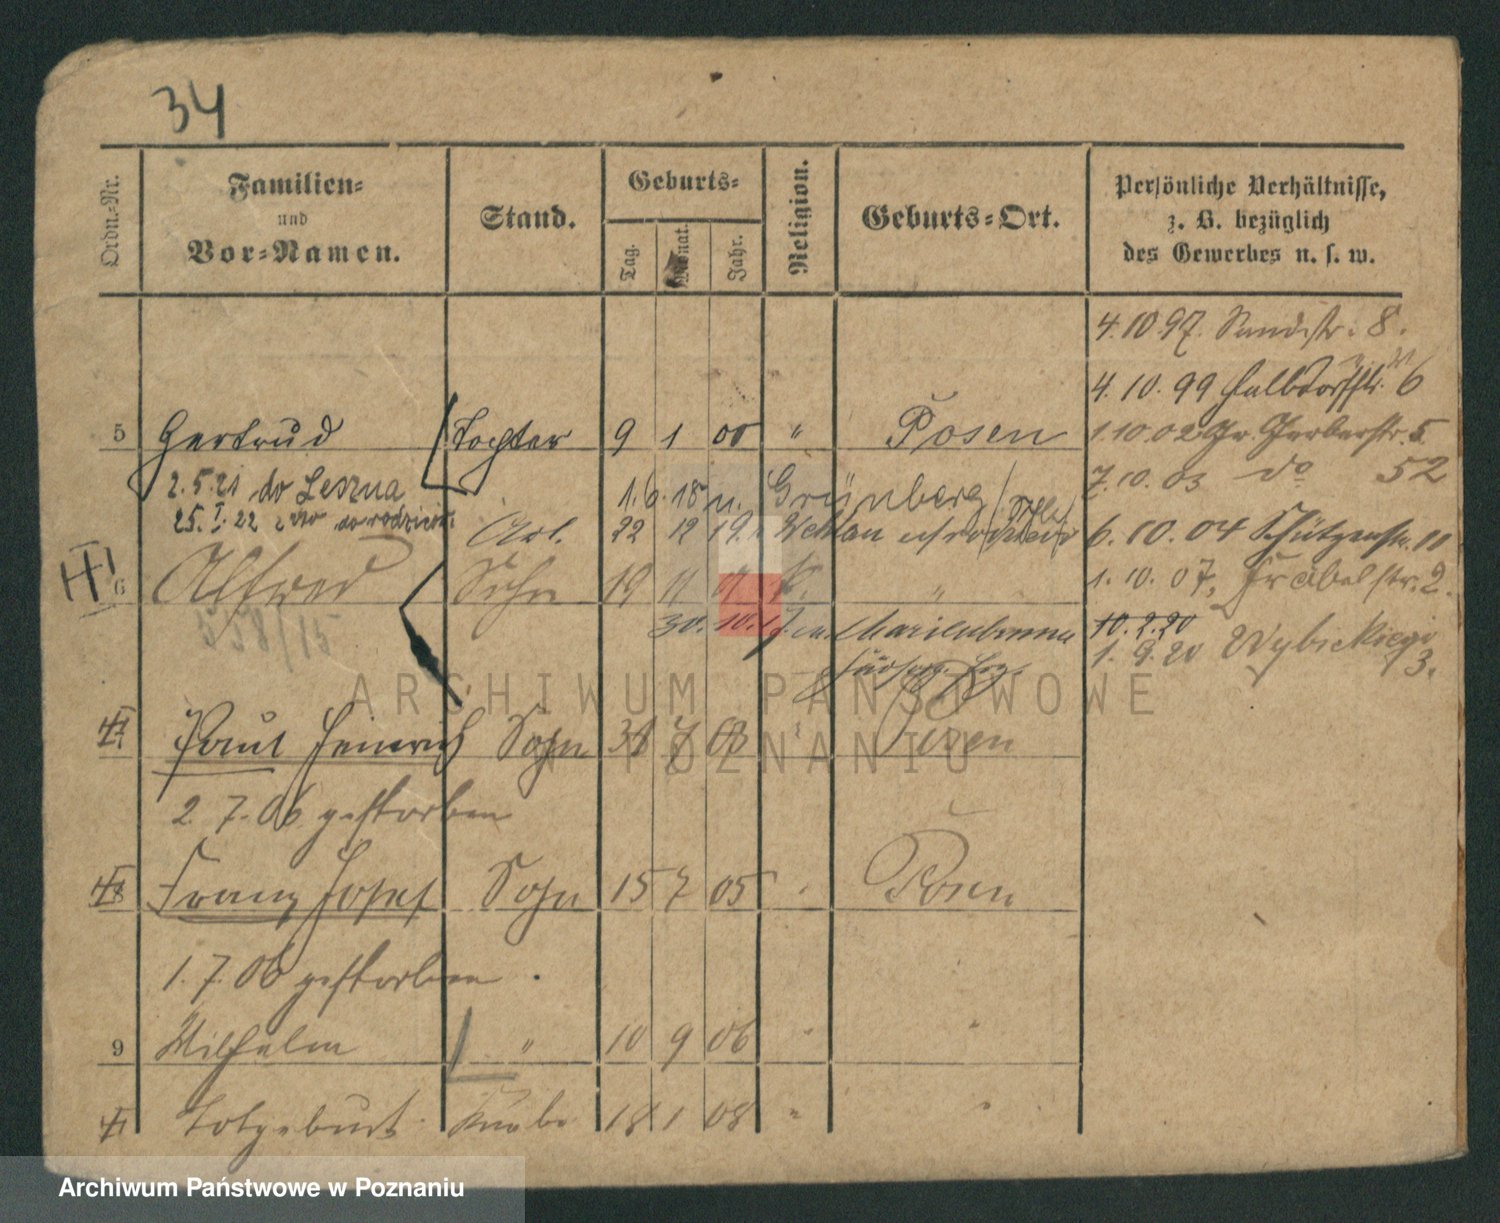 34
Ordn.-Nr.
Familien-
und
Vor-Namen.
Stand.
Geburts-
Tag.
Monat.
Jahr.
Religion.
Geburts-Ort.
Persönliche Verhältnisse,
z. B. bezüglich
des Gewerbes u. s. w.
4.10.97. Sandstr. 8.
4.10.99 Halbdorfstr. 6
5 Gertrud Tochter 9 1 00 " Posen
1.10.02 Gr. Gerberstr. 5
2.5.21 do Leszna
1.6.18 n. Grünberg
7.10.03 do 52
25.I.22 do rodziców
Arb. 22 12 19
6.10.04 Schützenstr. 11
6 Alfred Sohn 19 11 "
1.10.07, 2.
558/15
30.10.17. n. Marienbronn
10.2.20
1.9.20 Wybickiego
13.
Paul Heinrich Sohn 7 03 " Posen
2.7.06 gestorben
8 Franz Josef Sohn 15 7 05 " Posen
1.7.06 gestorben.
9 Wilhelm " 10 9 06 " "
Totgeburt Knabe 18 1 08 " "
ARCHIWUM PAŃSTWOWE
W POZNANIU
Archiwum Państwowe w Poznaniu